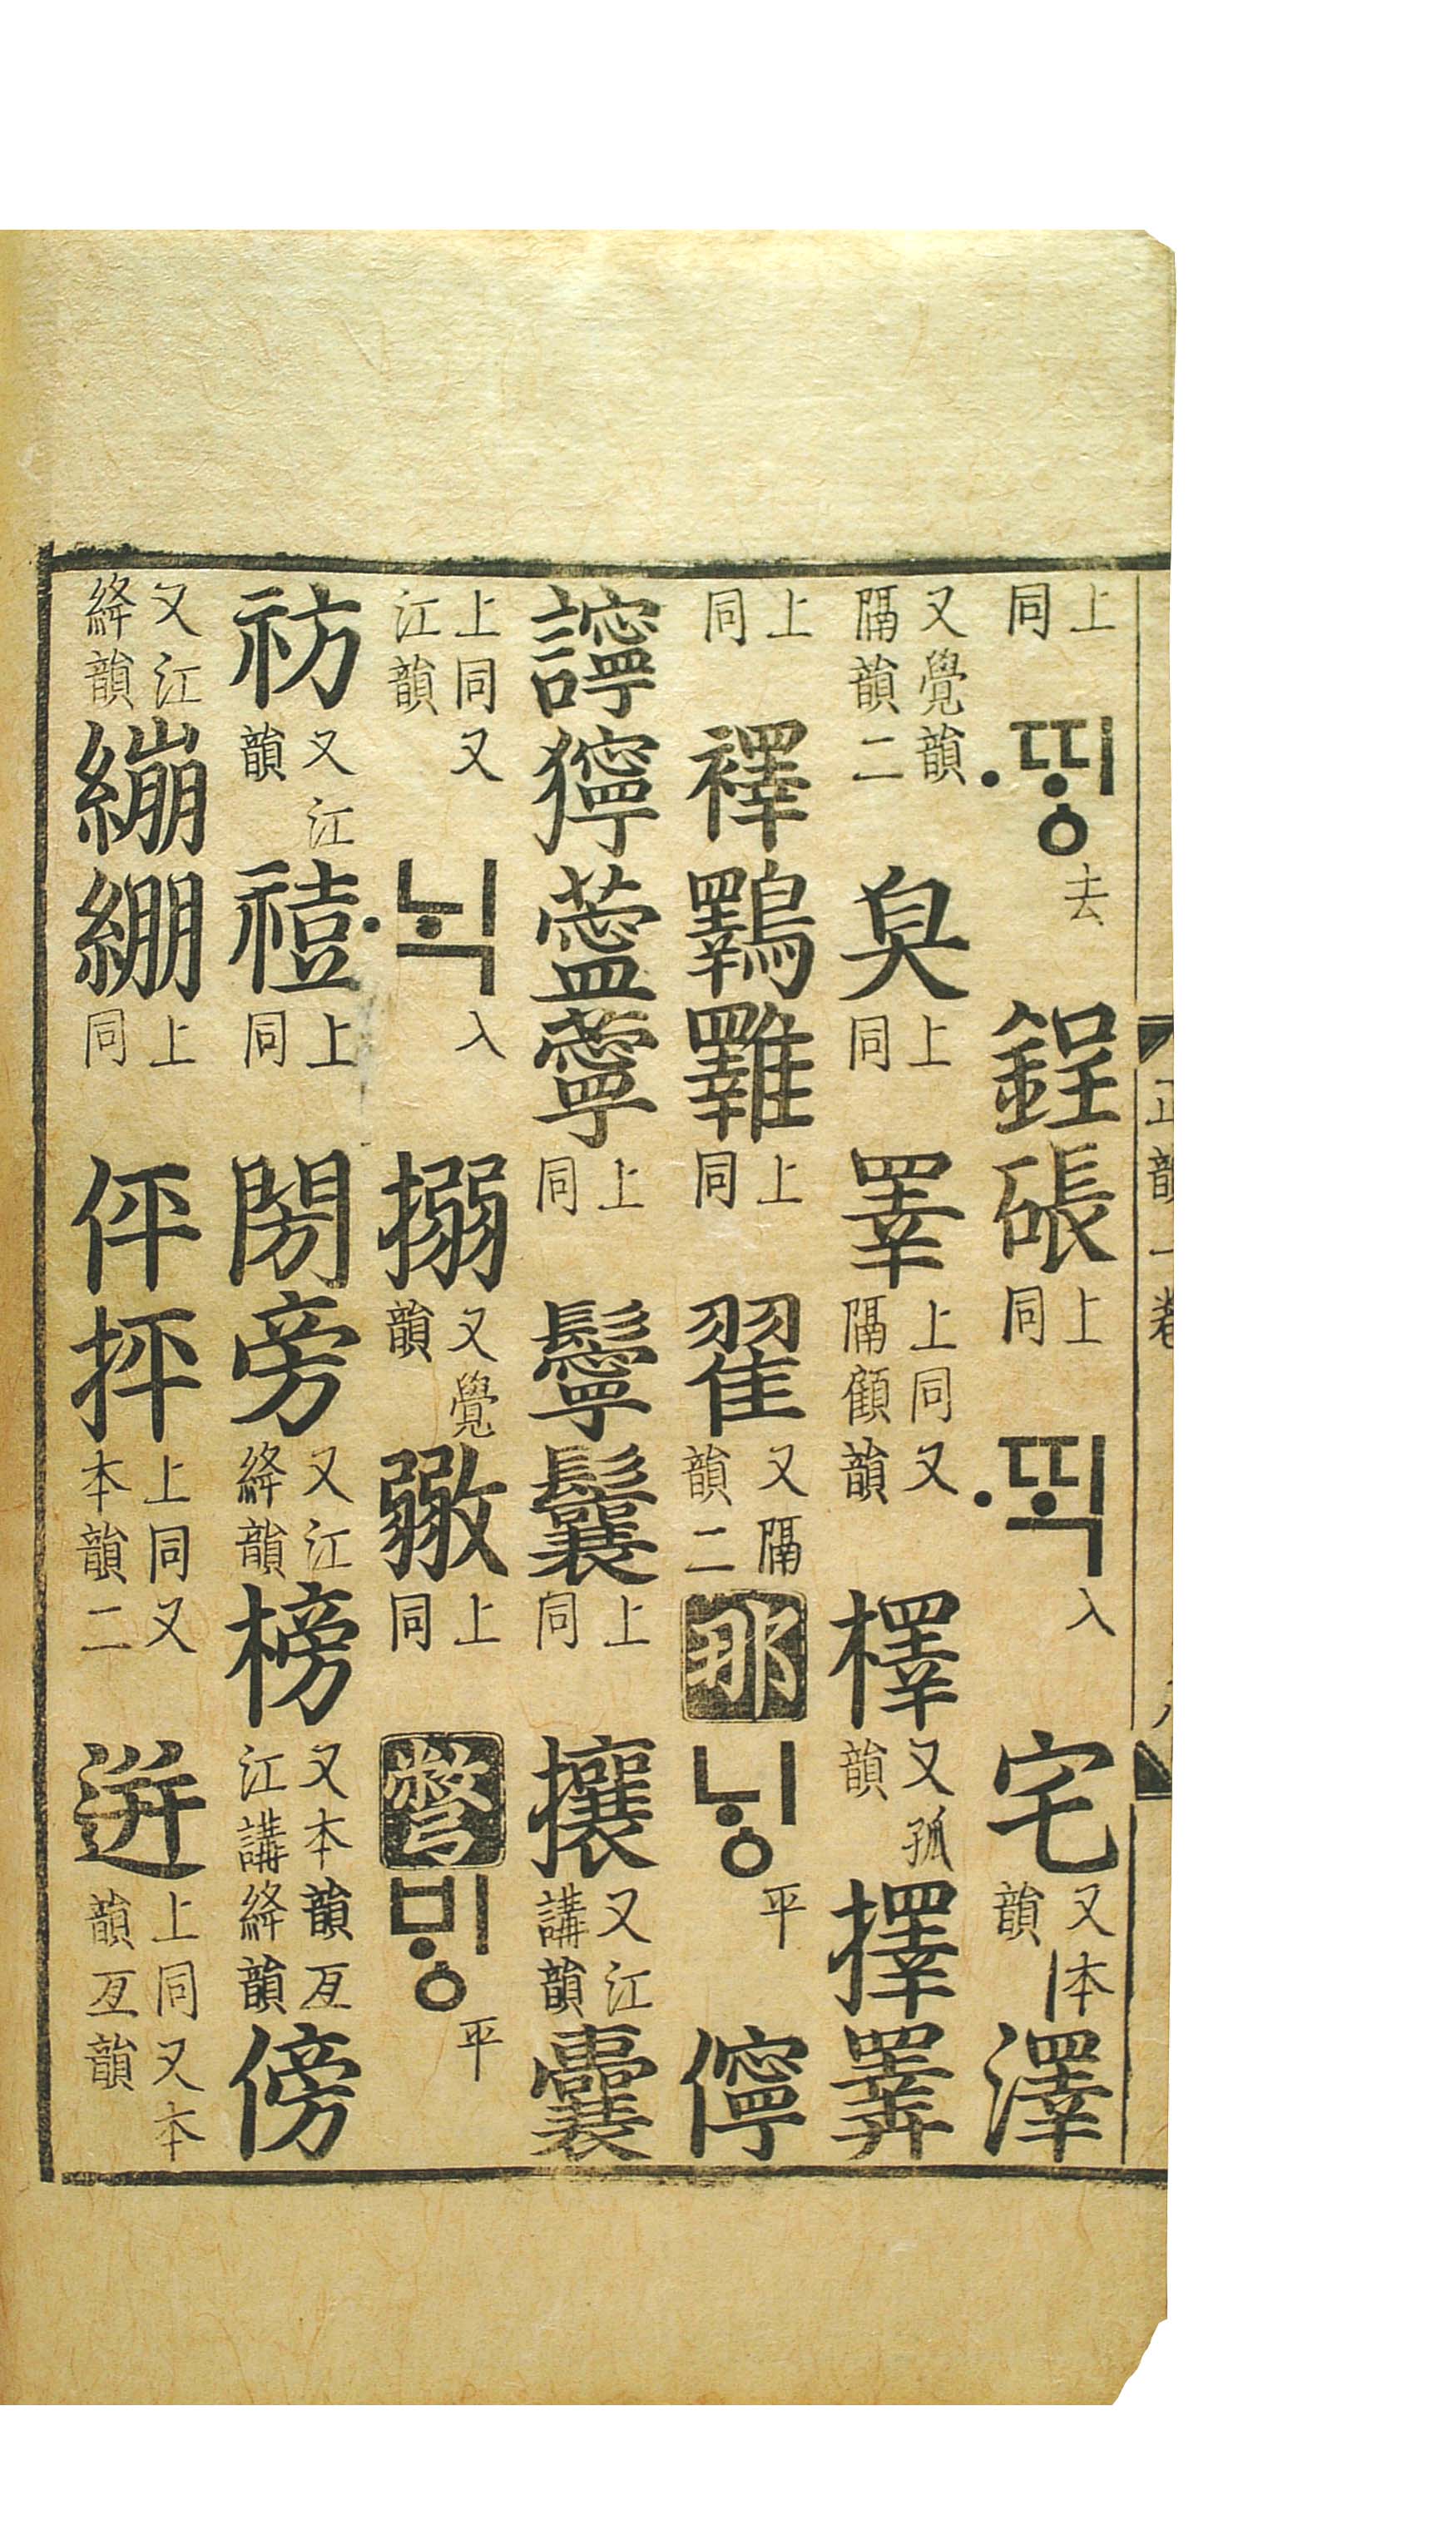 正韻一卷
上同 ᄄᆡᇰ〮 去 鋥 上同 ᄄᆡᆨ〮 入 宅 又本韻 澤
又覺韻隔韻二 臭 上同 睪 上同又隔顧韻 檡 又孤韻 擇
上同 襗 鸅 上同 翟 又隔韻二 那 ᄂᆡᇰ 平 儜
獰 薴 上同 鬡 鬤 上同 攘 又江講韻 囊
上同又江韻 ᄂᆡᆨ〮 入 搦 又覺韻 上同 彆 ᄇᆡᇰ 平
祊 又江韻 上同 閍 旁 又江絳韻 榜 又本韻亙江講絳韻 傍
又江絳韻 繃 綳 上同 伻 抨 上同又本韻二 迸 上同又本韻亙韻